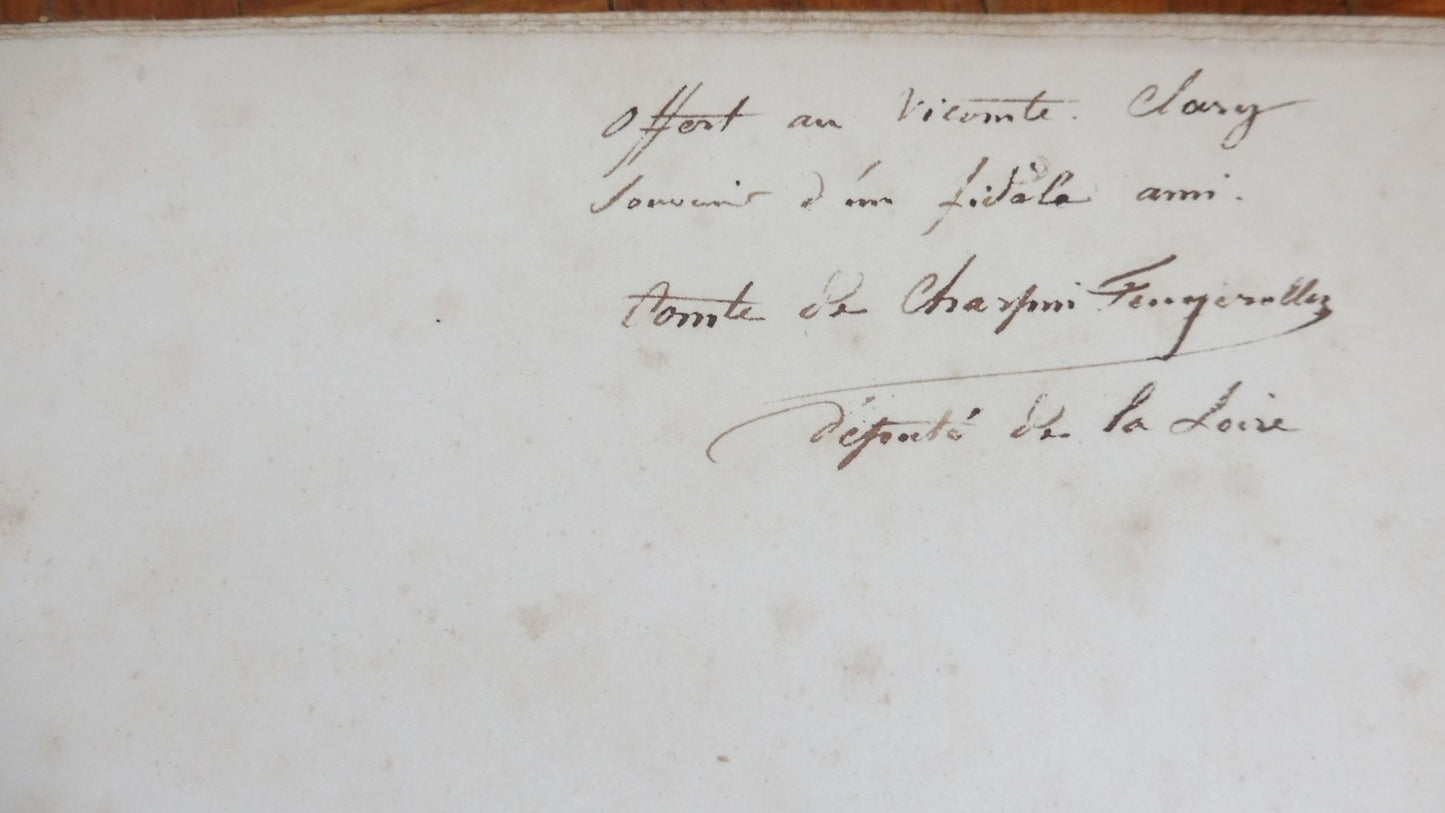 Offert au Vicomte. Clary
Souvenir d'un fidèle ami.
Comte de Charpin Feugerolles
député de la Loire